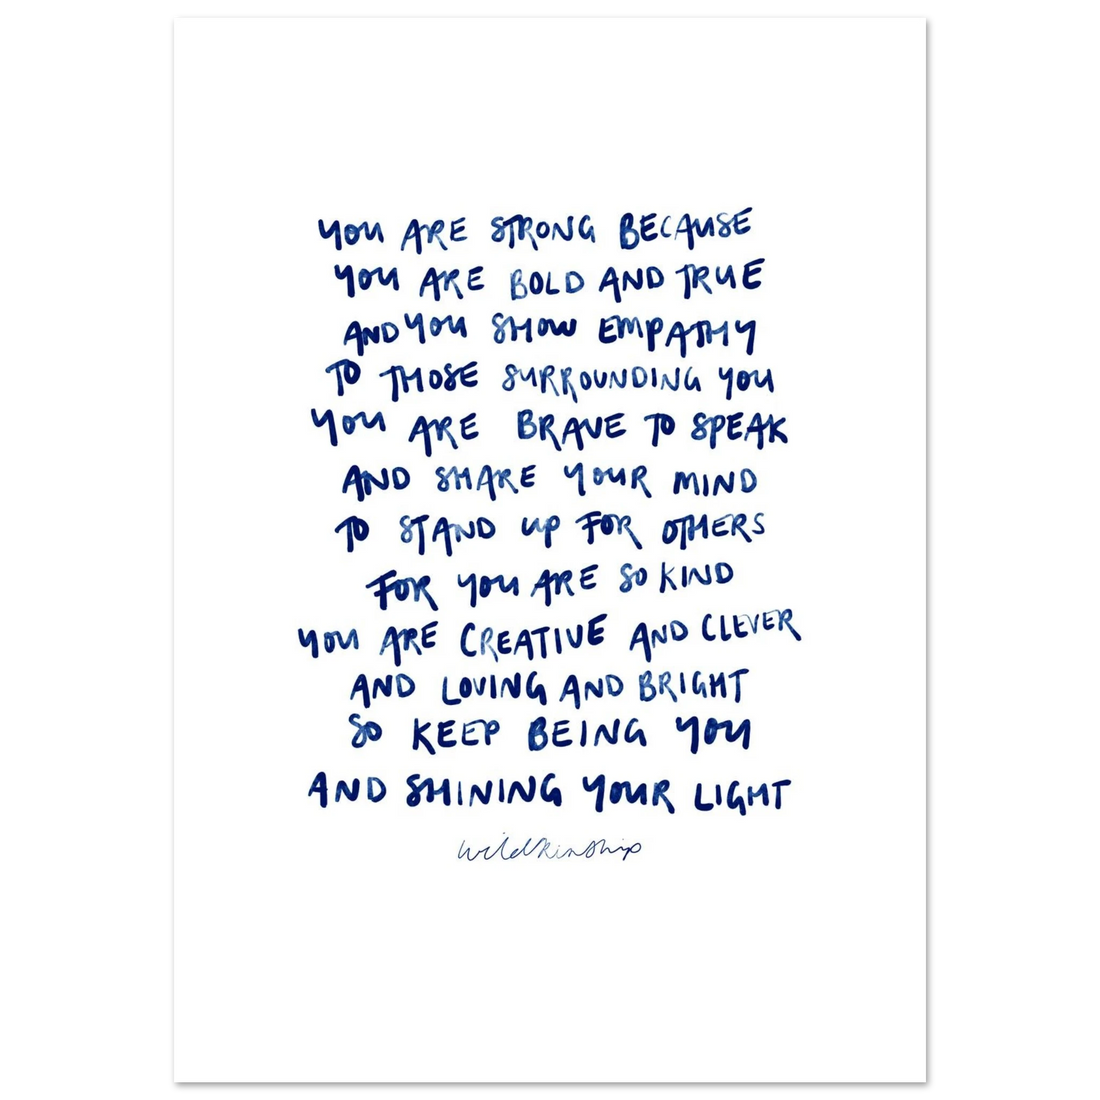 YOU ARE STRONG BECAUSE
YOU ARE BOLD AND TRUE
AND YOU SHOW EMPATHY
TO THOSE SURROUNDING YOU
YOU ARE BRAVE TO SPEAK
AND SHARE YOUR MIND
TO STAND UP FOR OTHERS
FOR YOU ARE SO KIND
YOU ARE CREATIVE AND CLEVER
AND LOVING AND BRIGHT
SO KEEP BEING YOU
AND SHINING YOUR LIGHT
wildkinship